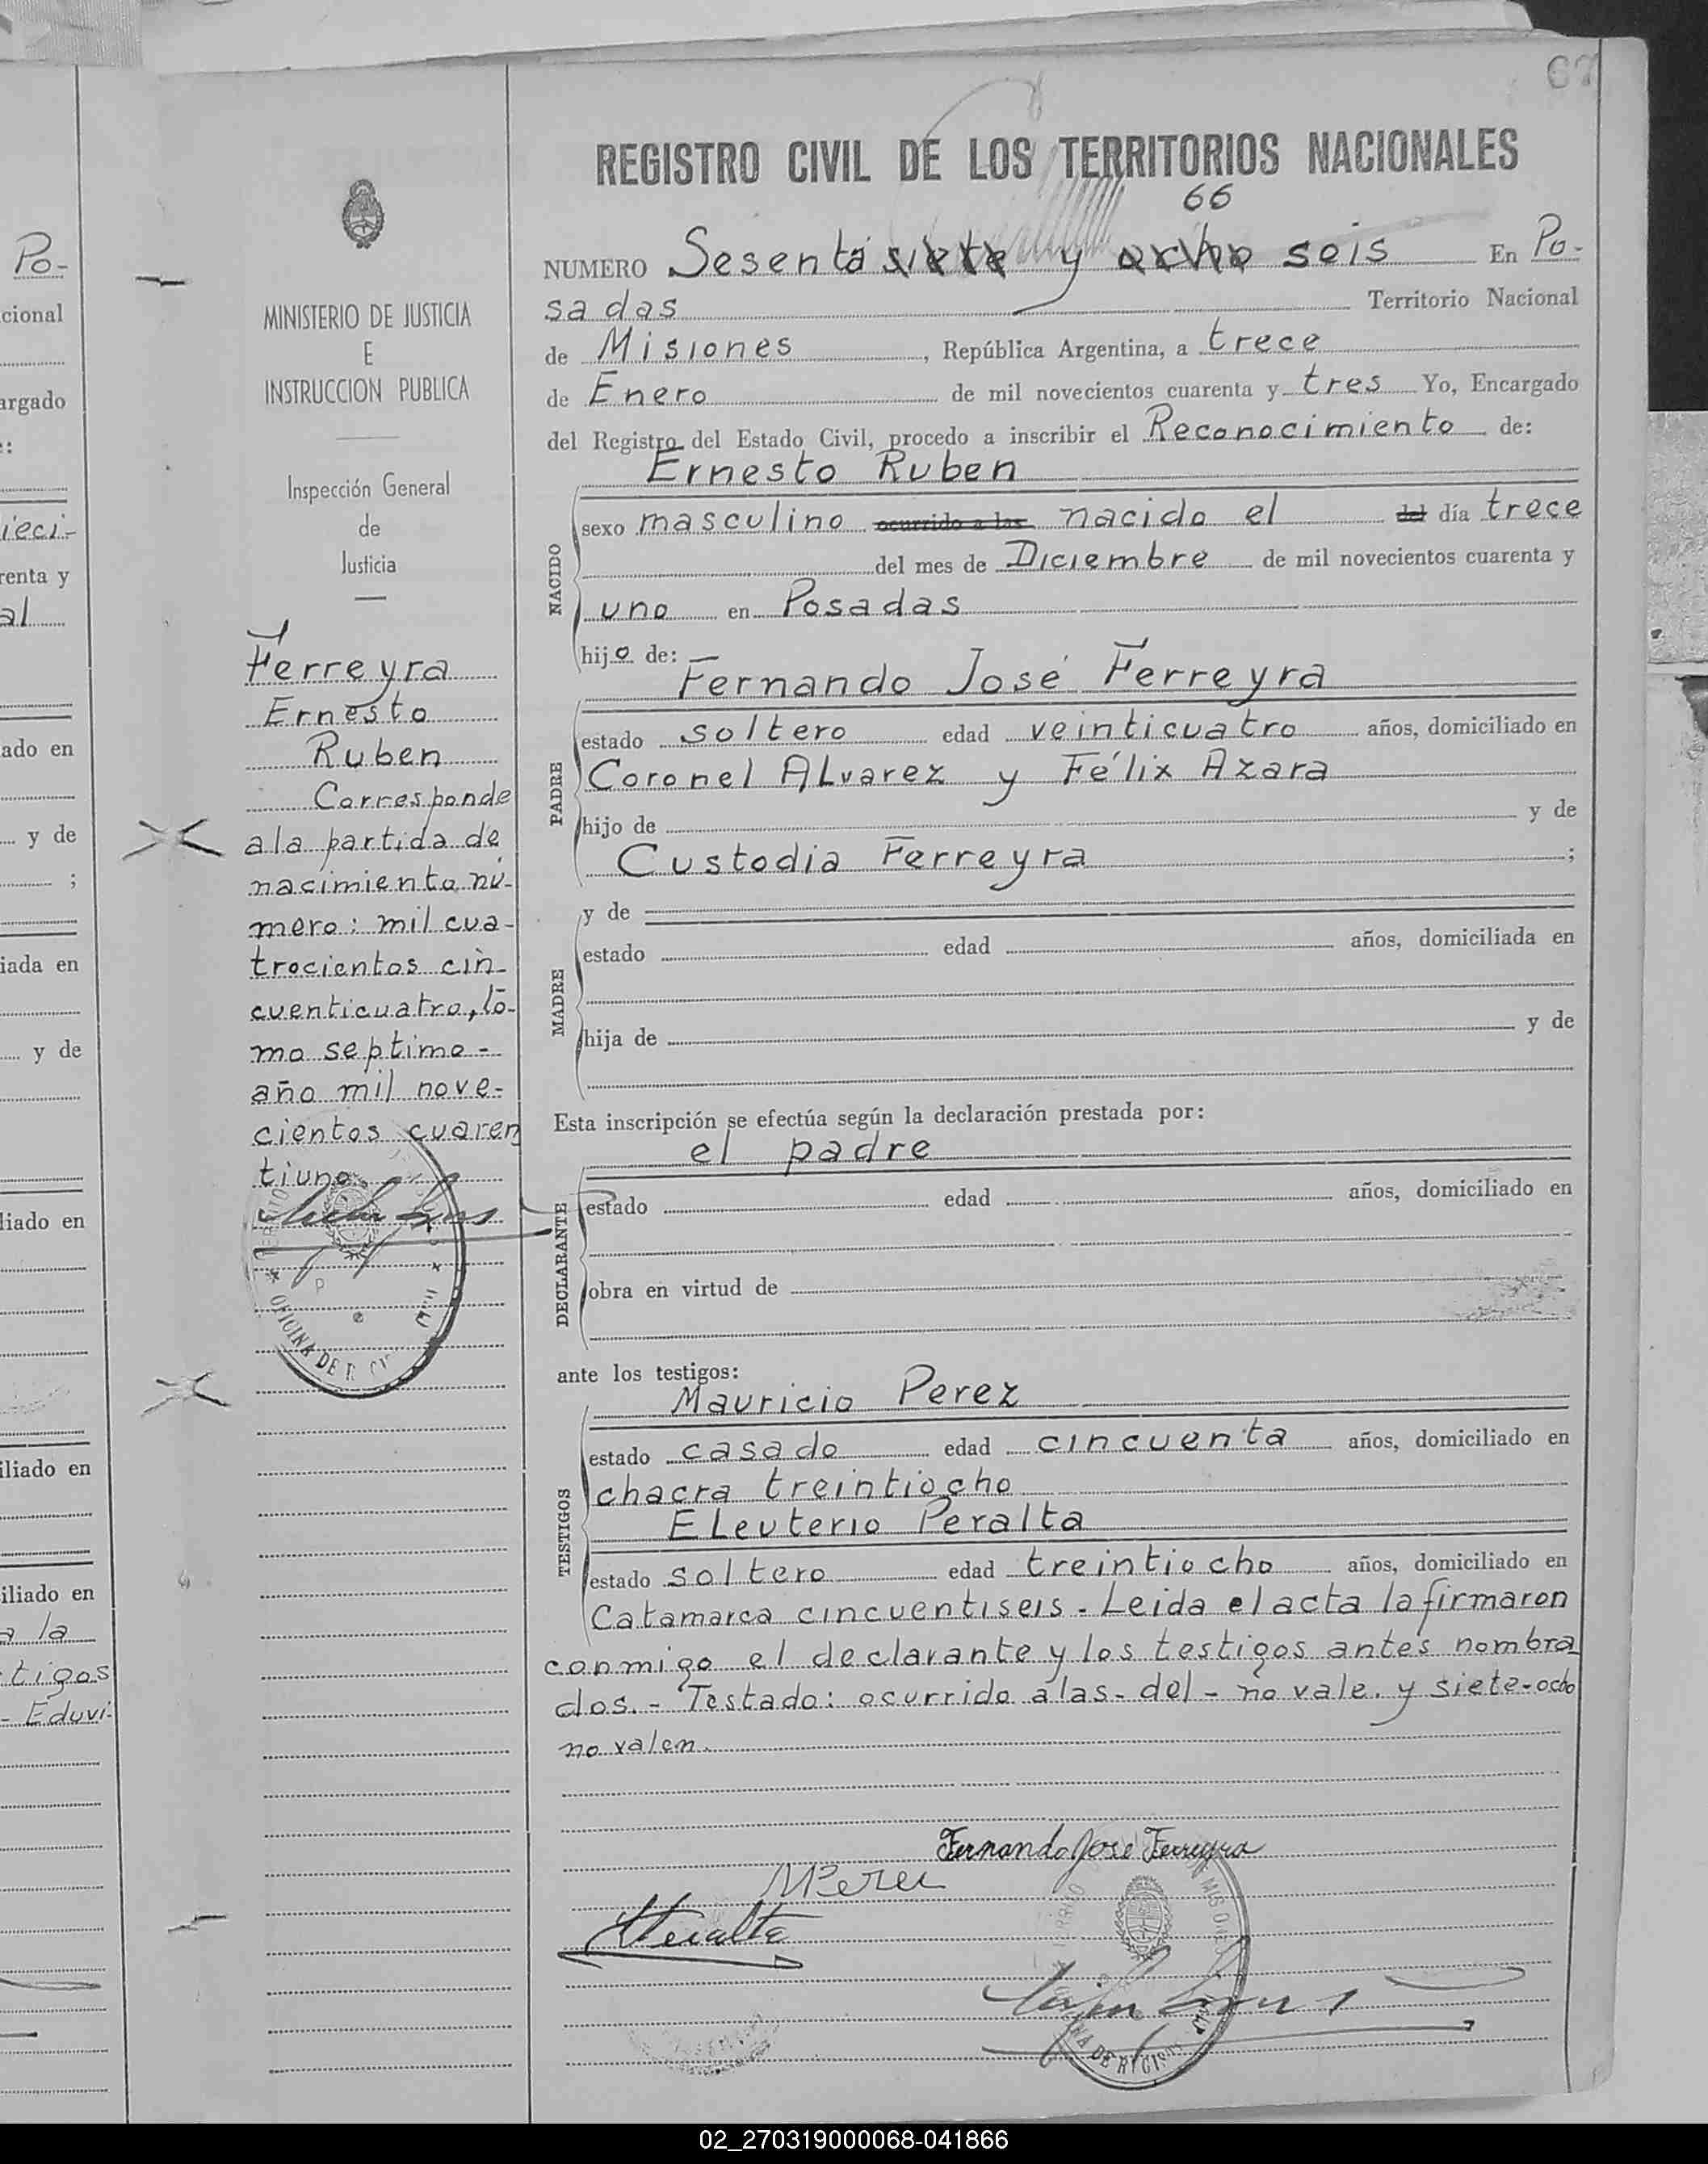 67
REGISTRO CIVIL DE LOS TERRITORIOS NACIONALES
66
NUMERO Sesenta siete y ocho seis En Po-
sadas Territorio Nacional
de Misiones, República Argentina, a trece
de Enero de mil novecientos cuarenta y tres Yo, Encargado
del Registro del Estado Civil, procedo a inscribir el Reconocimiento de:
Ernesto Ruben
NACIDO
sexo masculino ocurrido a las nacido el del día trece
del mes de Diciembre de mil novecientos cuarenta y
uno en Posadas
hijo de:
Fernando José Ferreyra
PADRE
estado soltero edad veinticuatro años, domiciliado en
Coronel Alvarez y Félix Azara
hijo de y de
Custodia Ferreyra ;
MADRE
y de
estado edad años, domiciliada en
hija de y de
Esta inscripción se efectúa según la declaración prestada por:
el padre
DECLARANTE
estado edad años, domiciliado en
obra en virtud de
ante los testigos:
Mauricio Perez
TESTIGOS
estado casado edad cincuenta años, domiciliado en
chacra treintiocho
Eleuterio Peralta
estado soltero edad treintiocho años, domiciliado en
Catamarca cincuentiseis. Leida el acta la firmaron
conmigo el declarante y los testigos antes nombra
dos.- Testado: ocurrido a las- del - no vale. y siete-ocho
no valen.
Fernando José Ferreyra
MPerez
Peralta
MINISTERIO DE JUSTICIA
E
INSTRUCCION PUBLICA
Inspección General
de
Justicia
Ferreyra
Ernesto
Ruben
Corresponde
a la partida de
nacimiento nú-
mero: mil cua-
trocientos cin-
cuenticuatro, to-
mo septimo -
año mil nove-
cientos cuaren
tiuno.
OFICINA DE R. CIVIL
Po-
cional
argado
:
ieci-
renta y
al
ado en
y de
;
iada en
y de
liado en
iliado en
iliado en
a la
tigos
- Eduvi-
02_270319000068-041866